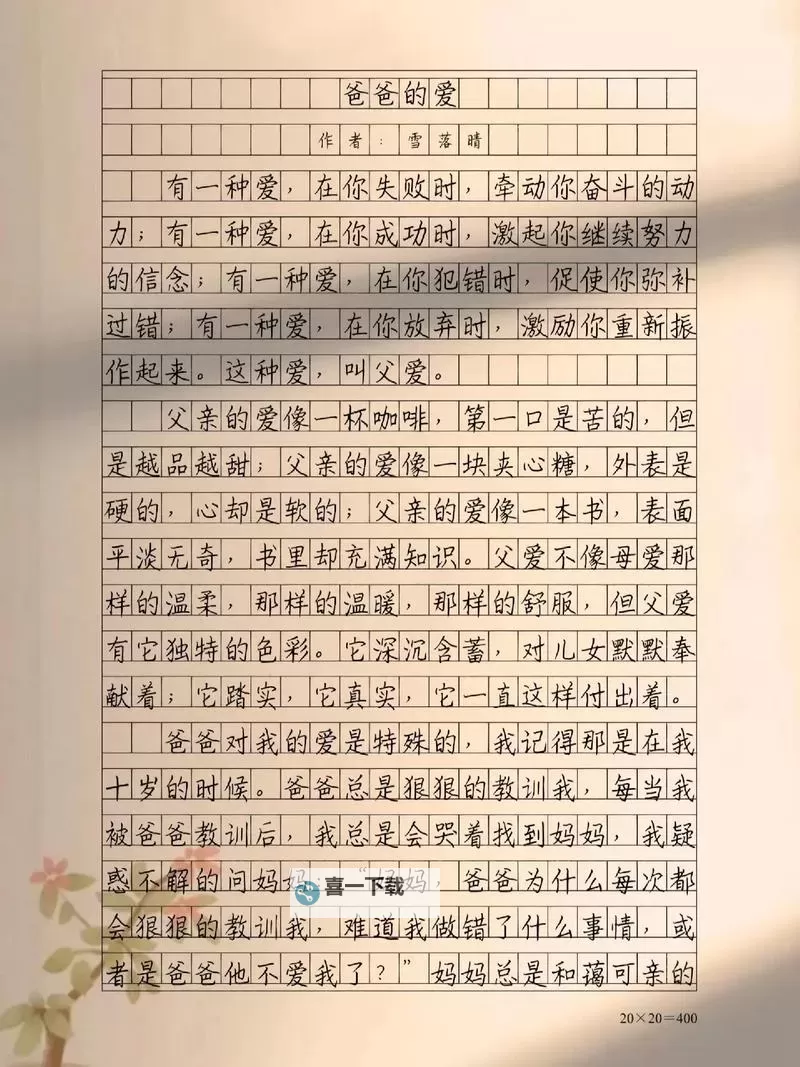 爸爸的爱
作者:雪落晴
有一种爱,在你失败时,牵动你奋斗的动
力;有一种爱,在你成功时,激起你继续努力
的信念;有一种爱,在你犯错时,促使你弥补
过错;有一种爱,在你放弃时,激励你重新振
作起来。这种爱,叫父爱。
父亲的爱像一杯咖啡,第一口是苦的,但
是越品越甜;父亲的爱像一块夹心糖,外表是
硬的,心却是软的;父亲的爱像一本书,表面
平淡无奇,书里却充满知识。父爱不像母爱那
样的温柔,那样的温暖,那样的舒服,但父爱
有它独特的色彩。它深沉含蓄,对儿女默默奉
献着;它踏实,它真实,它一直这样付出着。
爸爸对我的爱是特殊的,我记得那是在我
十岁的时候。爸爸总是狠狠的教训我,每当我
被爸爸教训后,我总是会哭着找到妈妈,我疑
惑不解的问妈妈:“妈妈,爸爸为什么每次都
喜一下载
会狠狠的教训我,难道我做错了什么事情,或
者是爸爸他不爱我了?”妈妈总是和蔼可亲的
20×20=400